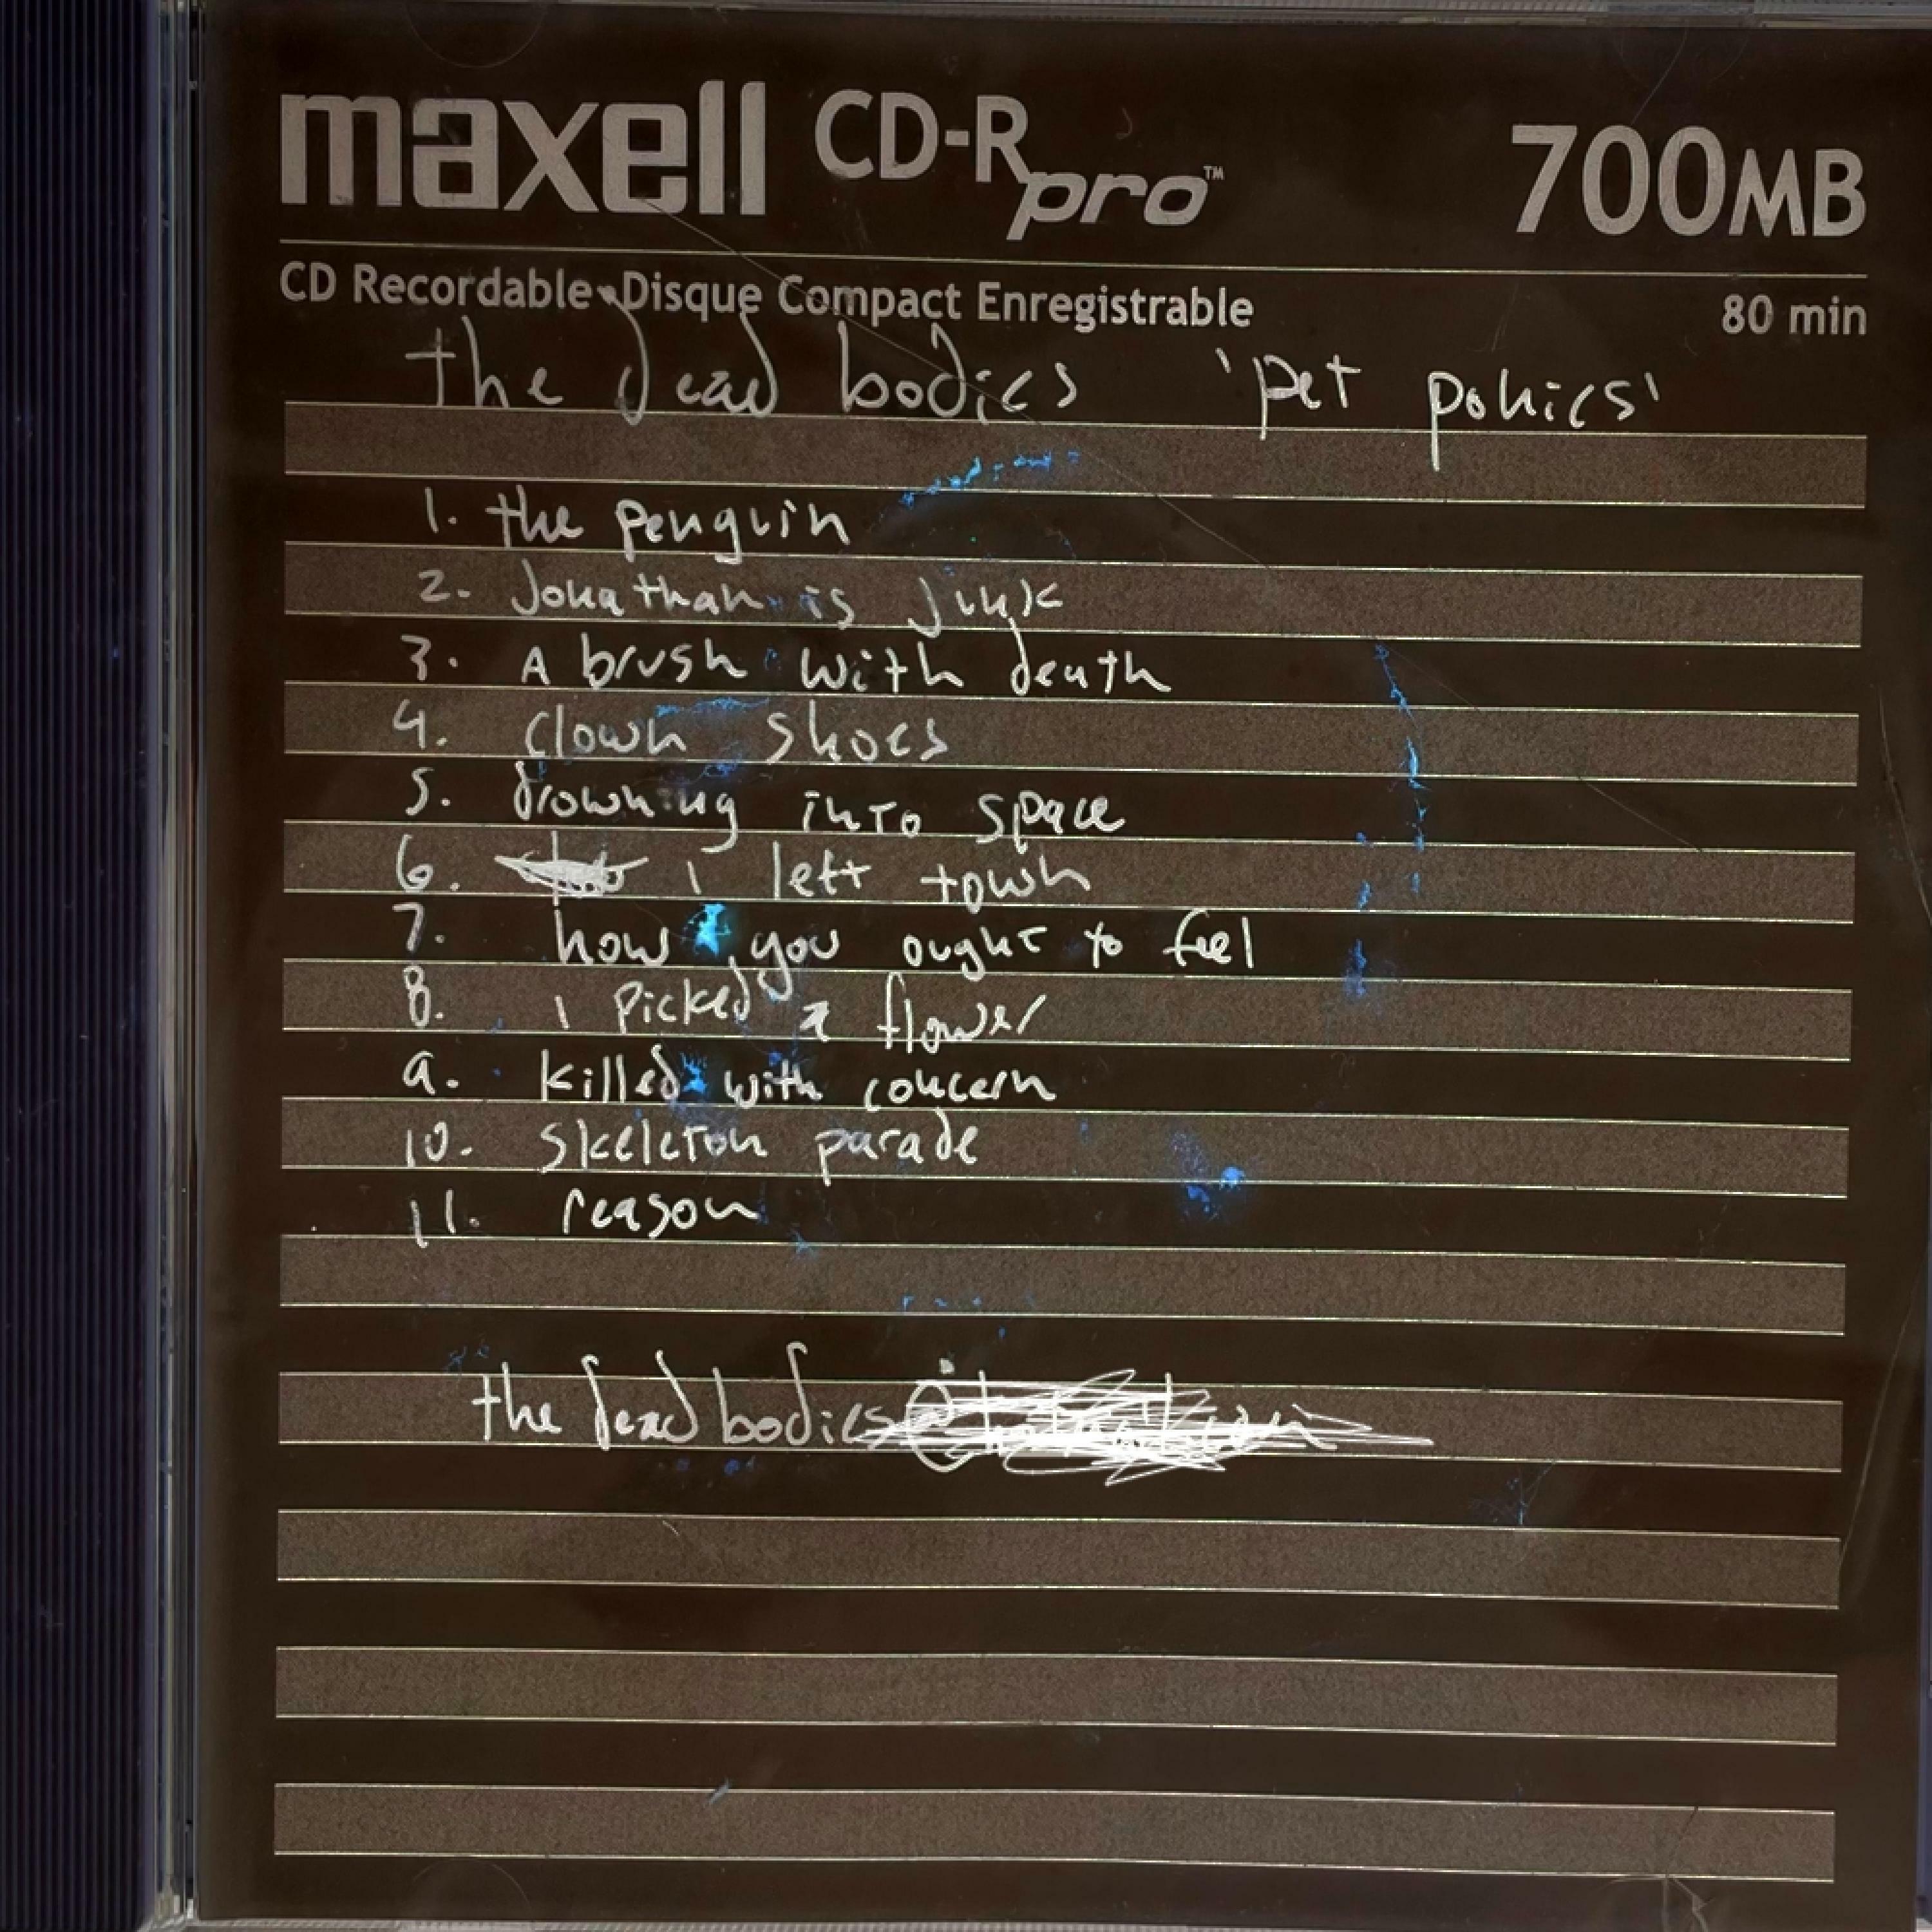 maxell CD-R pro™ 700MB
CD Recordable • Disque Compact Enregistrable 80 min
the dead bodies 'pet politics'
1. the penguin
2. Jonathan is junk
3. A brush with death
4. clown shoes
5. drowning into space
6. i left town
7. how you ought to feel
8. i picked a flower
9. killed with concern
10. skeleton parade
11. reason
the dead bodies